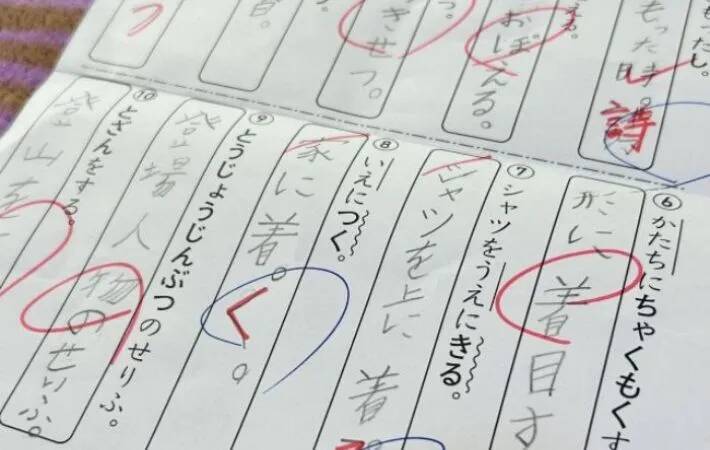 もったし。
もった時。
詩
える。
おぼえる。
つ。
きせつ。
つ
⑥かたちにちゃくもくす
形に、着目す
⑦シャツをうえにきる。
シャツを上に着。
⑧いえにつく。
家に着。
く。
⑨とうじょうじんぶつのせりふ。
登場人物のせりふ。
⑩とざんをする。
登山を